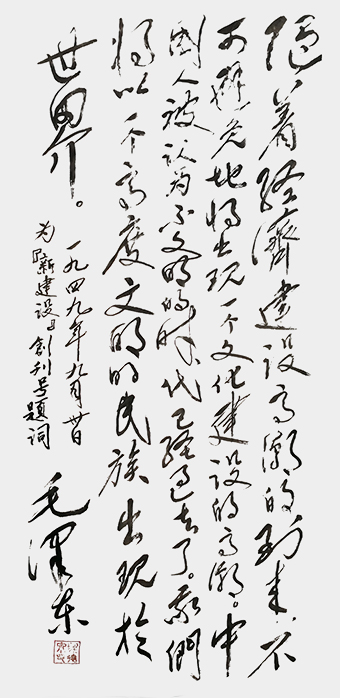 随着经濟建设高潮的到来不
可避免地将出现一个文化建设的高潮。中
國人被认为不文明的时代已经过去了。我們
将以一个高度文明的民族出现於
世界。
一九四九年九月廿日
为『新建设』創刊号题词
毛澤东